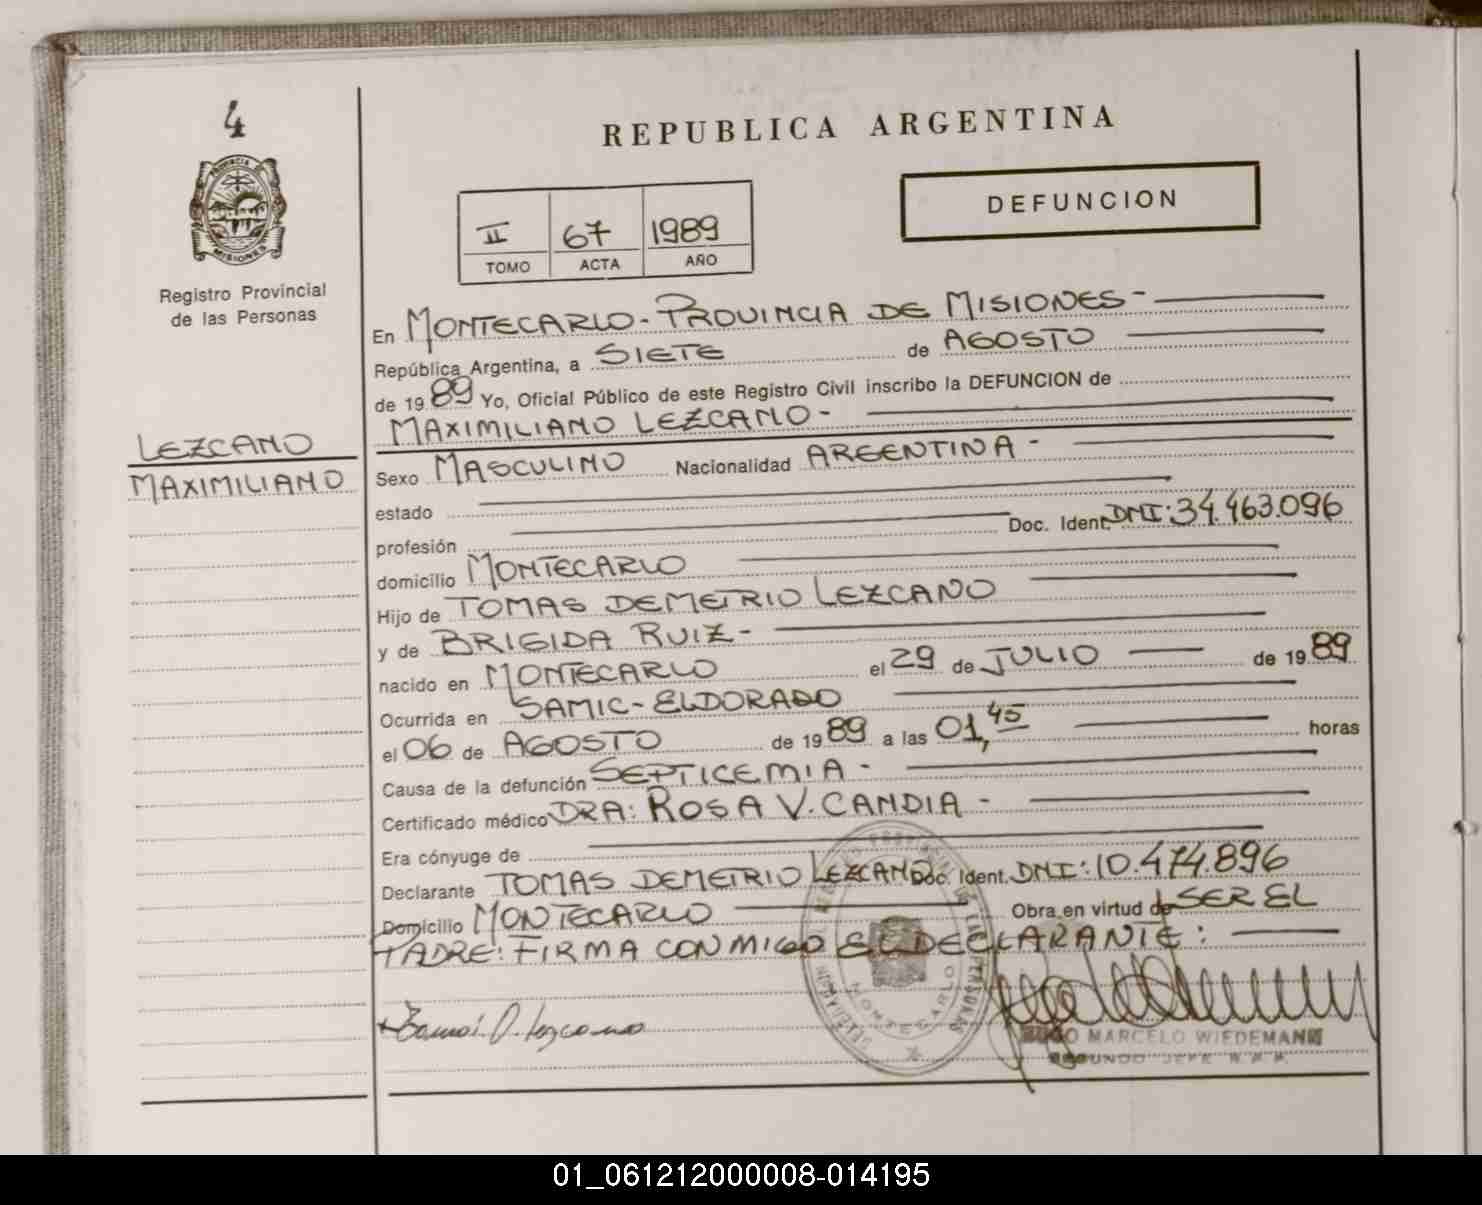 4
PROVINCIA DE
MISIONES
Registro Provincial
de las Personas
LEZCANO
MAXIMILIANO
REPUBLICA ARGENTINA
II 67 1989
TOMO ACTA AÑO
DEFUNCION
En MONTECARLO - PROVINCIA DE MISIONES -
República Argentina, a SIETE de AGOSTO
de 19 89 Yo, Oficial Público de este Registro Civil inscribo la DEFUNCION de
MAXIMILIANO LEZCANO -
Sexo MASCULINO Nacionalidad ARGENTINA -
estado
profesión Doc. Ident. DNI: 34.463.096
domicilio MONTECARLO
Hijo de TOMAS DEMETRIO LEZCANO
y de BRIGIDA RUIZ -
nacido en MONTECARLO el 29 de JULIO de 19 89
Ocurrida en SAMIC - ELDORADO
el 06 de AGOSTO de 19 89 a las 01,45 horas
Causa de la defunción SEPTICEMIA -
Certificado médico DRA: ROSA V. CANDIA -
Era cónyuge de
Declarante TOMAS DEMETRIO LEZCANO Doc. Ident. DNI: 10.474.896
Domicilio MONTECARLO Obra en virtud de SER EL
PADRE: FIRMA CONMIGO EL DECLARANTE:
MONTECARLO
HUGO MARCELO WIEDEMANN
SEGUNDO JEFE R.P.P.
01_061212000008-014195